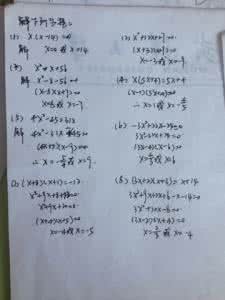 解下列方程:
(1) x(x-14)=0
解 x=0 或 x=14
(2) x²+12x+27=0
(x+3)(x+9)=0
x=-3 或 x=-9
(3) x²=x+56
解 x²-x-56=0
(x-8)(x+7)=0
x=8 或 x=-7
(4) x(5x+4)=5x+4
(x-1)(5x+4)=0
∴ x=1 或 x=-4/5
(5) 4x²-45=31x
4x²-31x-45=0
(4x+5)(x-9)=0
∴ x=-5/4 或 x=9
(6)
3x²-22x+24=0
(3x-4)(x-6)=0
x=4/3 或 x=6
(7) (x+8)(x+1)=-12
x²+9x+8+12=0
x²+9x+20=0
(x+4)(x+5)=0
x=-4 或 x=-5
(8) (3x+2)(x+3)=x+14
3x²+9x+2x+6-x-14=0
3x²+10x-8=0
(3x-2)(x+4)=0
x=2/3 或 x=-4